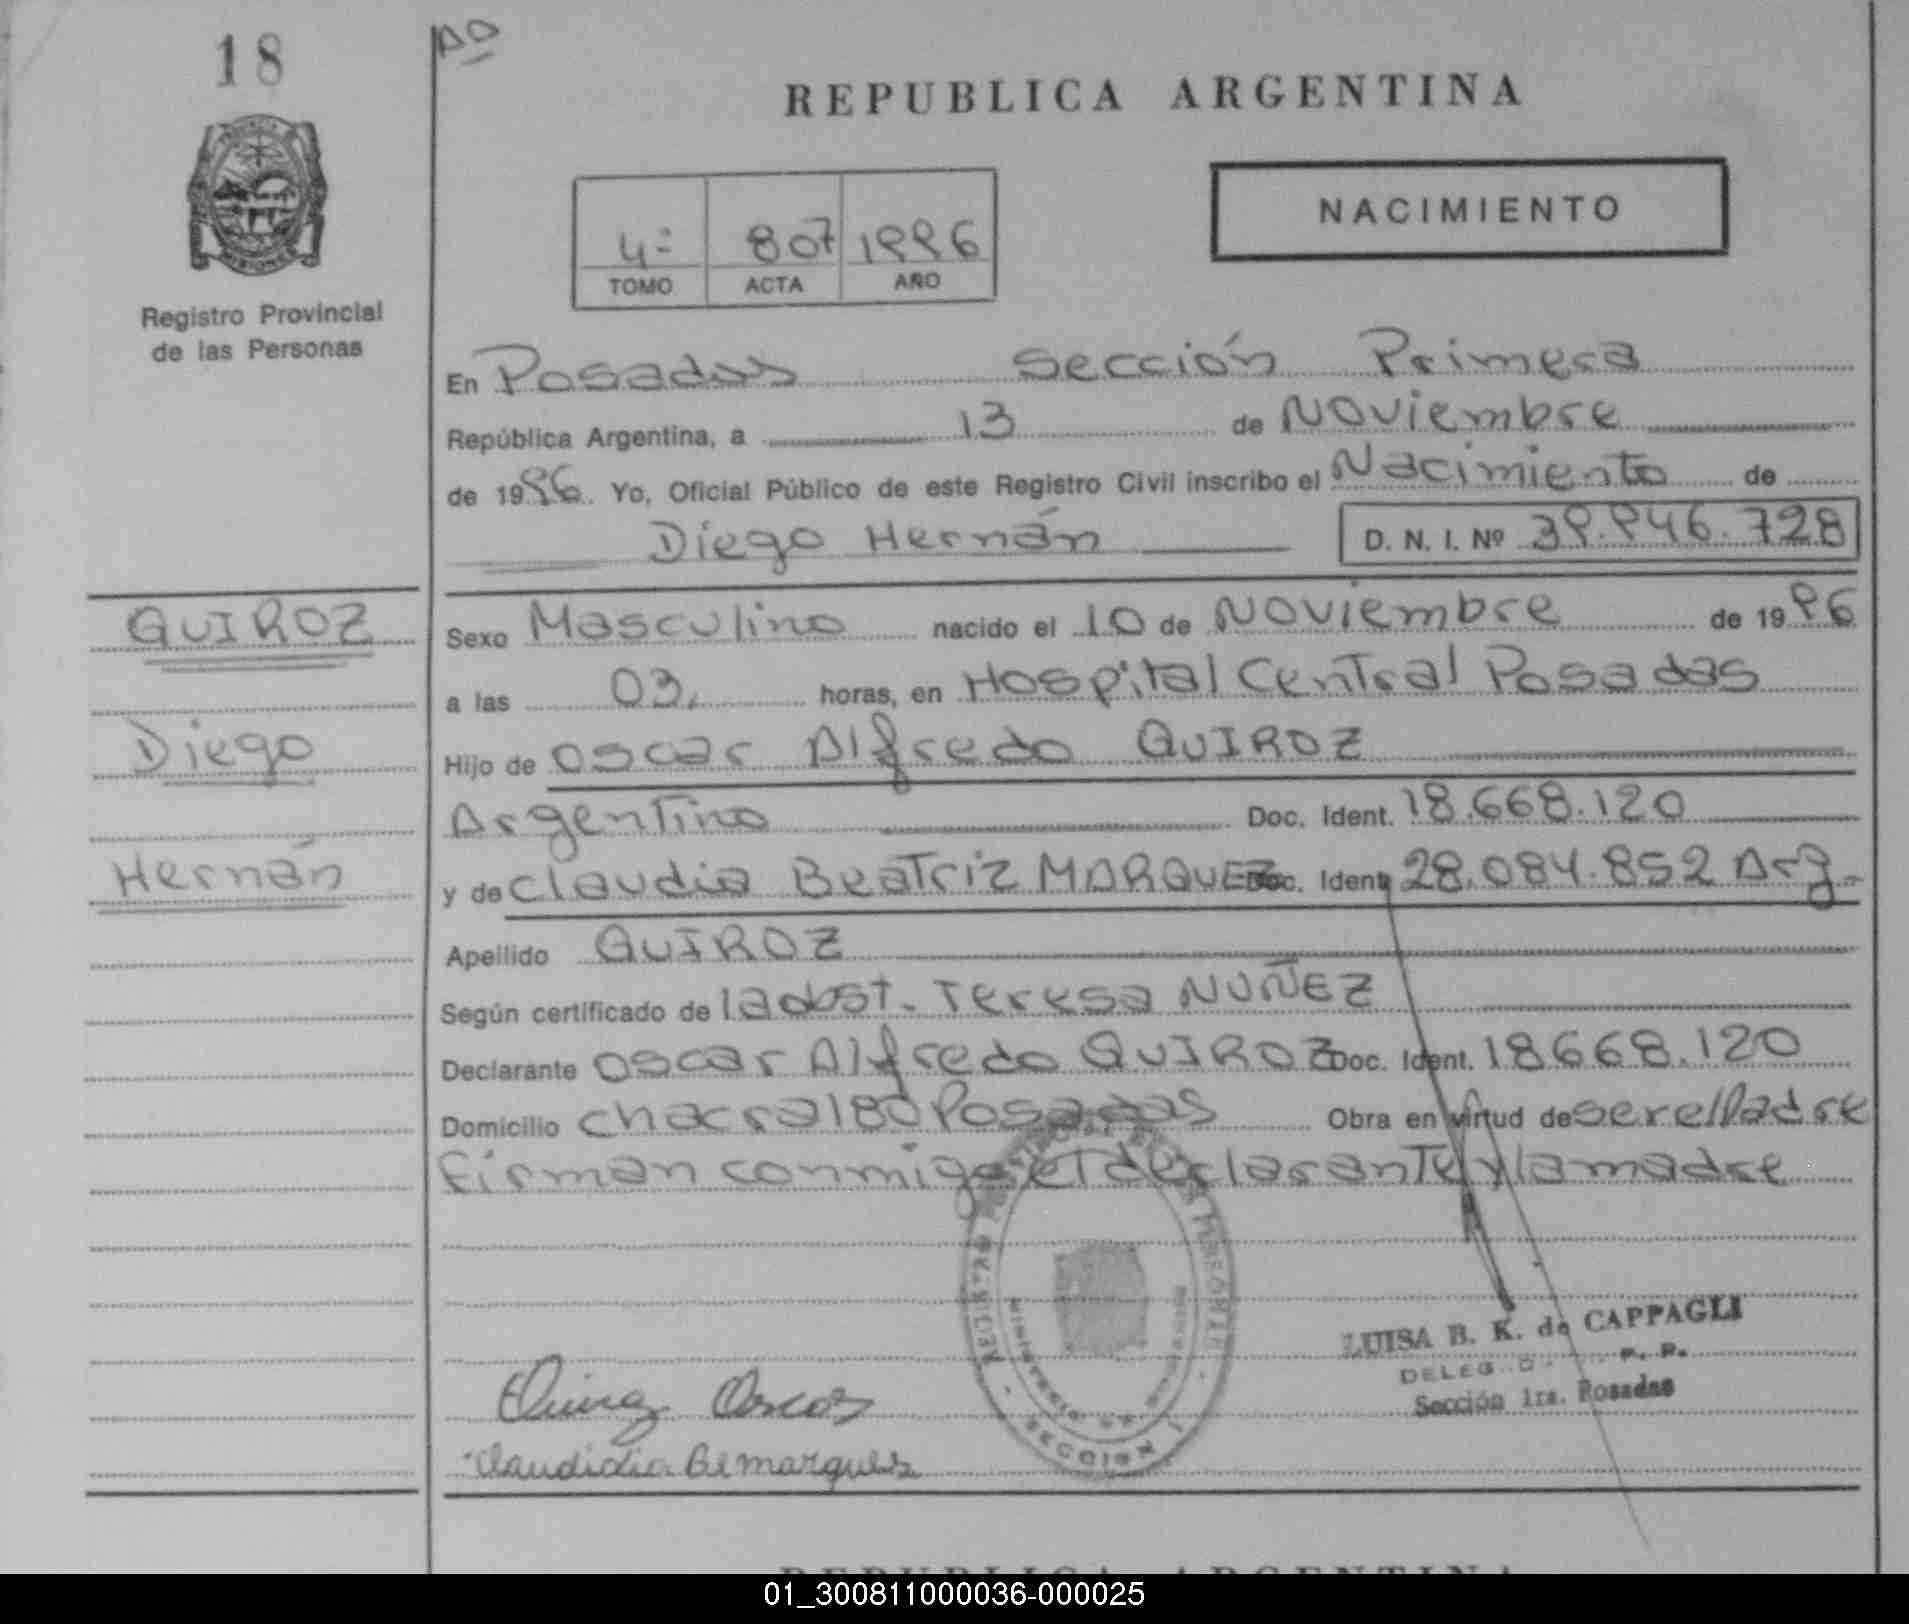 18
Aº
REPUBLICA ARGENTINA
NACIMIENTO
4º 807 1996
TOMO ACTA AÑO
Registro Provincial
de las Personas
En Posadas Sección Primera
República Argentina, a 13 de Noviembre
de 1996. Yo, Oficial Público de este Registro Civil inscribo el Nacimiento de
Diego Hernán D. N. I. Nº 39.946.728
QUIROZ
Diego
Hernán
Sexo Masculino nacido el 10 de Noviembre de 1996
a las 03, horas, en Hospital Central Posadas
Hijo de Oscar Alfredo QUIROZ
Argentino Doc. Ident. 18.668.120
y de Claudia Beatriz MARQUEZ Doc. Ident. 28.084.852 Arg.
Apellido QUIROZ
Según certificado de la obst. Teresa NUÑEZ
Declarante Oscar Alfredo QUIROZ Doc. Ident. 18668.120
Domicilio Chacra 180 Posadas Obra en virtud de ser el Padre
firman conmigo el declarante y la madre
LUISA B. K. de CAPPAGLI
Sección 1ra. Posadas
Quiroz Oscar
SECCION 1
REPUBLICA ARGENTINA
01_300811000036-000025